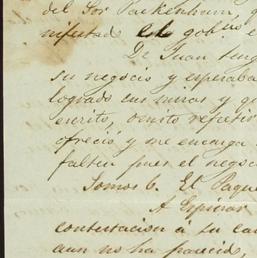 del Sor Packenham,
nifestado el gobno
De Juan teng
su negocio y esperaba
logrado sus miras y q
escrito, omito repetir
ofreció y me encarga
falten pues el negoc
Somos 6. El Paque
A Espinar
contestacion á su ca
aun no ha parecido,